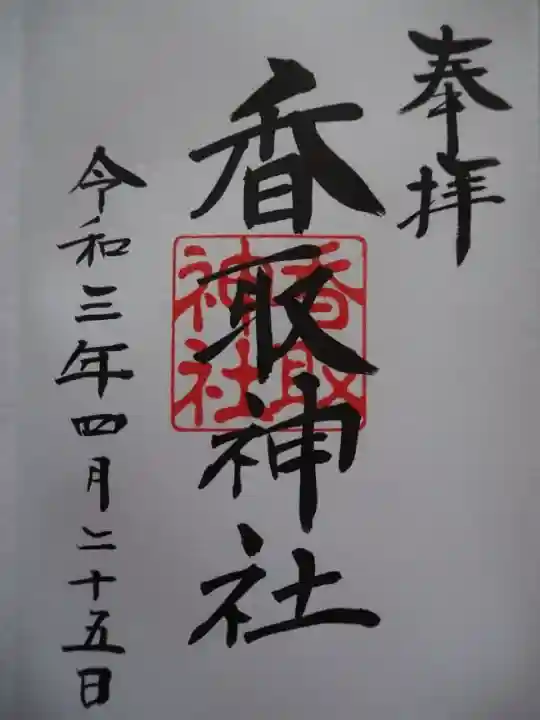 奉拝
香取神社
香取神社
令和三年四月二十五日